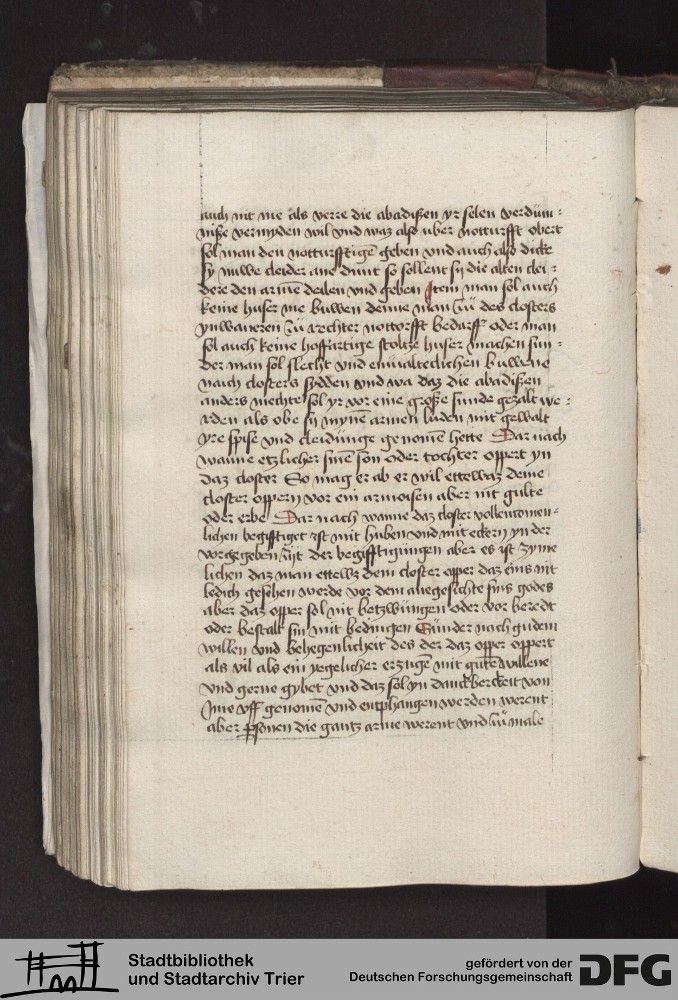 auch nit me als verre die abadißen yr selen verdüm=
niße vermyden wil vnd waz also uber notturfft obert
sol man den notturfftigē geben vnd auch also dicke
sy nuwe cleider ane dünt so sollent sy die alten clei=
dere den armē deilen vnd geben Item man sol auch
keine huser me buwen denne man zü des closters
ynwaneren zü rechter nottorfft bedarff oder man
sol auch keine hoffartige stoltze huser machen sun=
der man sol slecht vnd einualteclichen buwene
nach closters sydden vnd wa daz die abadißen
anders mechte sol yr vor eine große sunde gezalt we=
rden als obe sy mynē armen luden mit gewalt
yre spise vnd cleidünge genomē hette Dar nach
wanne etzlicher sinē son oder tochter oppert yn
daz closter So mag er ab er wil ettewaz deme
closter oppern vor ein armoisen aber nit gulte
oder erbe Dar nach wanne daz closter vollencomen=
lichen begifftiget ist mit huben vnd mit eckern yn der
vorgegeben zijt der begifftigüngen aber es ist zyme
lichen daz man ettewz dem closter opper daz eins nit
ledich gesehen werde vor dem anegesichte sins godes
aber daz opper sol nit betzwüngen oder vor beredt
oder bestalt sin mit bedingen Sünder nach gudem
willen vnd behegenlicheit des der daz opper oppert
als vil als ein yegelicher erzugē mit gutē willene
vnd gerne gybet vnd daz sol yn danckberckeit von
yme vff genomē vnd entphangen werden werent
aber psonen die gantz arme werent vnd zü male
Stadtbibliothek
und Stadtarchiv Trier
gefördert von der
Deutschen Forschungsgemeinschaft
DFG